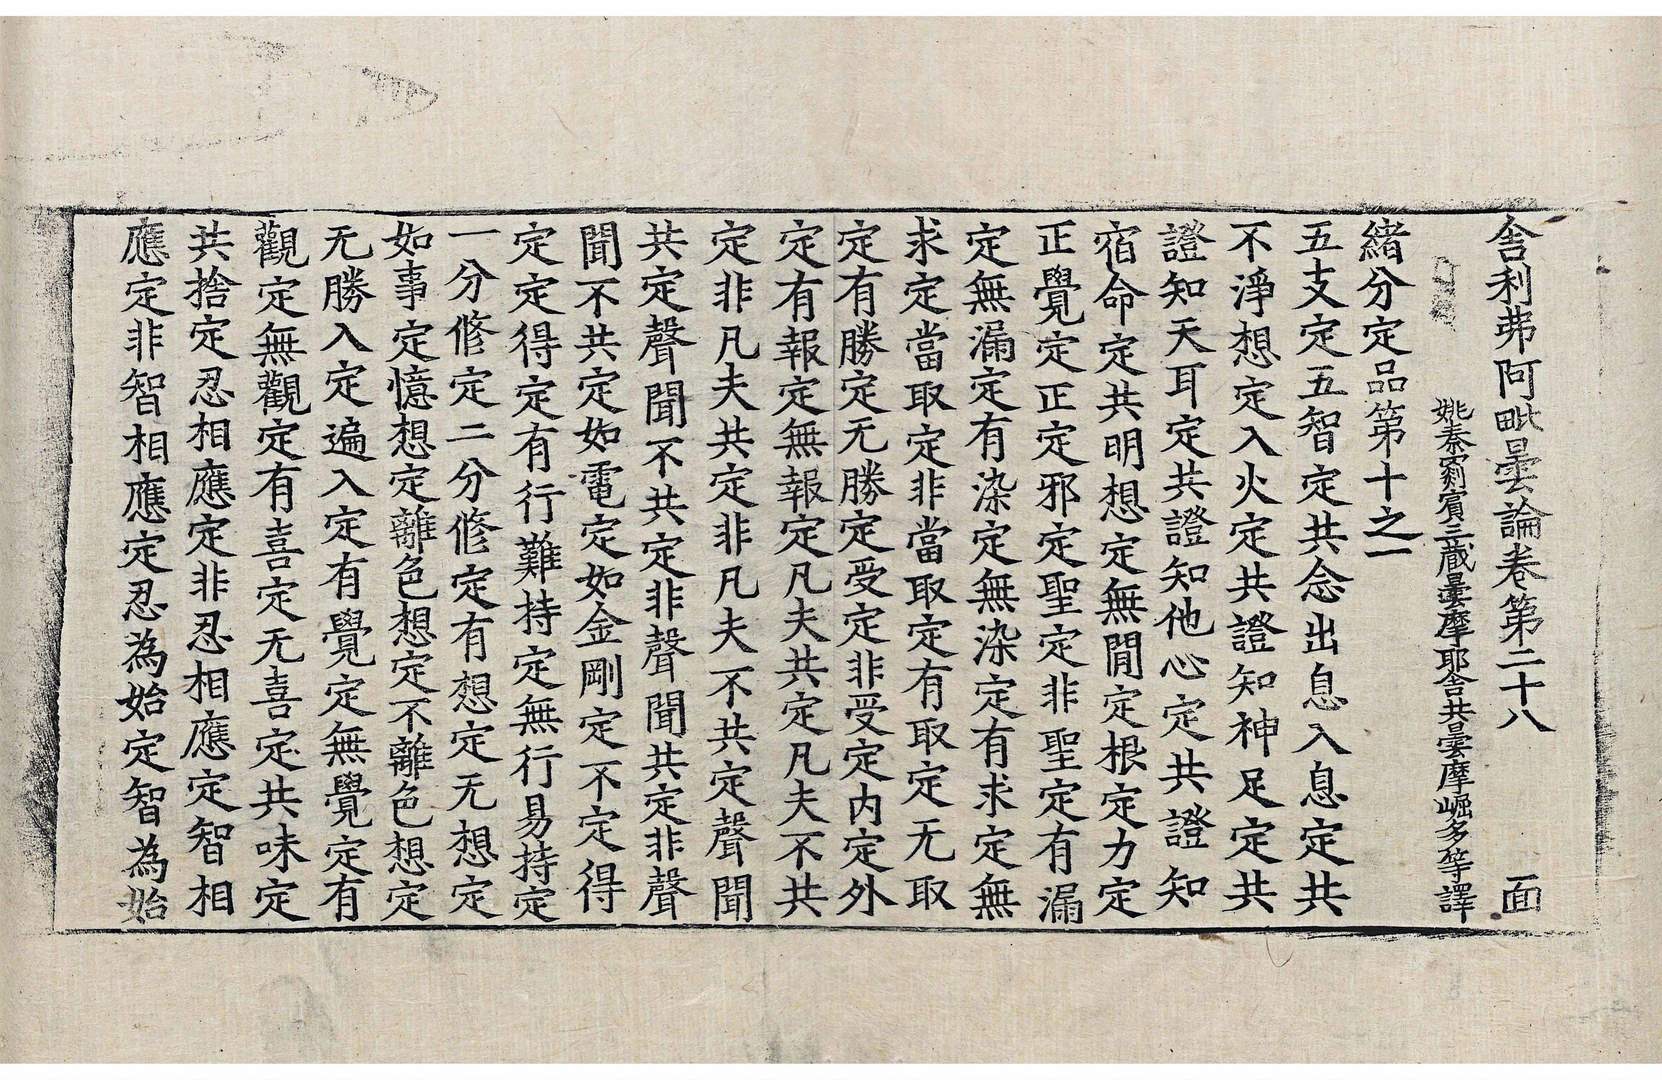 舍利弗阿毗曇論卷第二十八 面
姚秦罽賓三藏曇摩耶舍共曇摩崛多等譯
緒分定品第十之一
五支定五智定共念出息入息定共
不淨想定入火定共證知神足定共
證知天耳定共證知他心定共證知
宿命定共明想定無間定根定力定
正覺定正定邪定聖定非聖定有漏
定無漏定有染定無染定有求定無
求定當取定非當取定有取定无取
定有勝定无勝定受定非受定内定外
定有報定無報定凡夫共定凡夫不共
定非凡夫共定非凡夫不共定聲聞
共定聲聞不共定非聲聞共定非聲
聞不共定如電定如金剛定不定得
定定得定有行難持定無行易持定
一分修定二分修定有想定无想定
如事定憶想定離色想定不離色想定
无勝入定遍入定有覺定無覺定有
觀定無觀定有喜定无喜定共味定
共捨定忍相應定非忍相應定智相
應定非智相應定忍為始定智為始